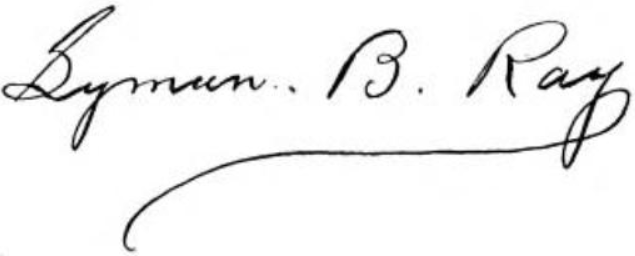 Lyman.. B. Ray